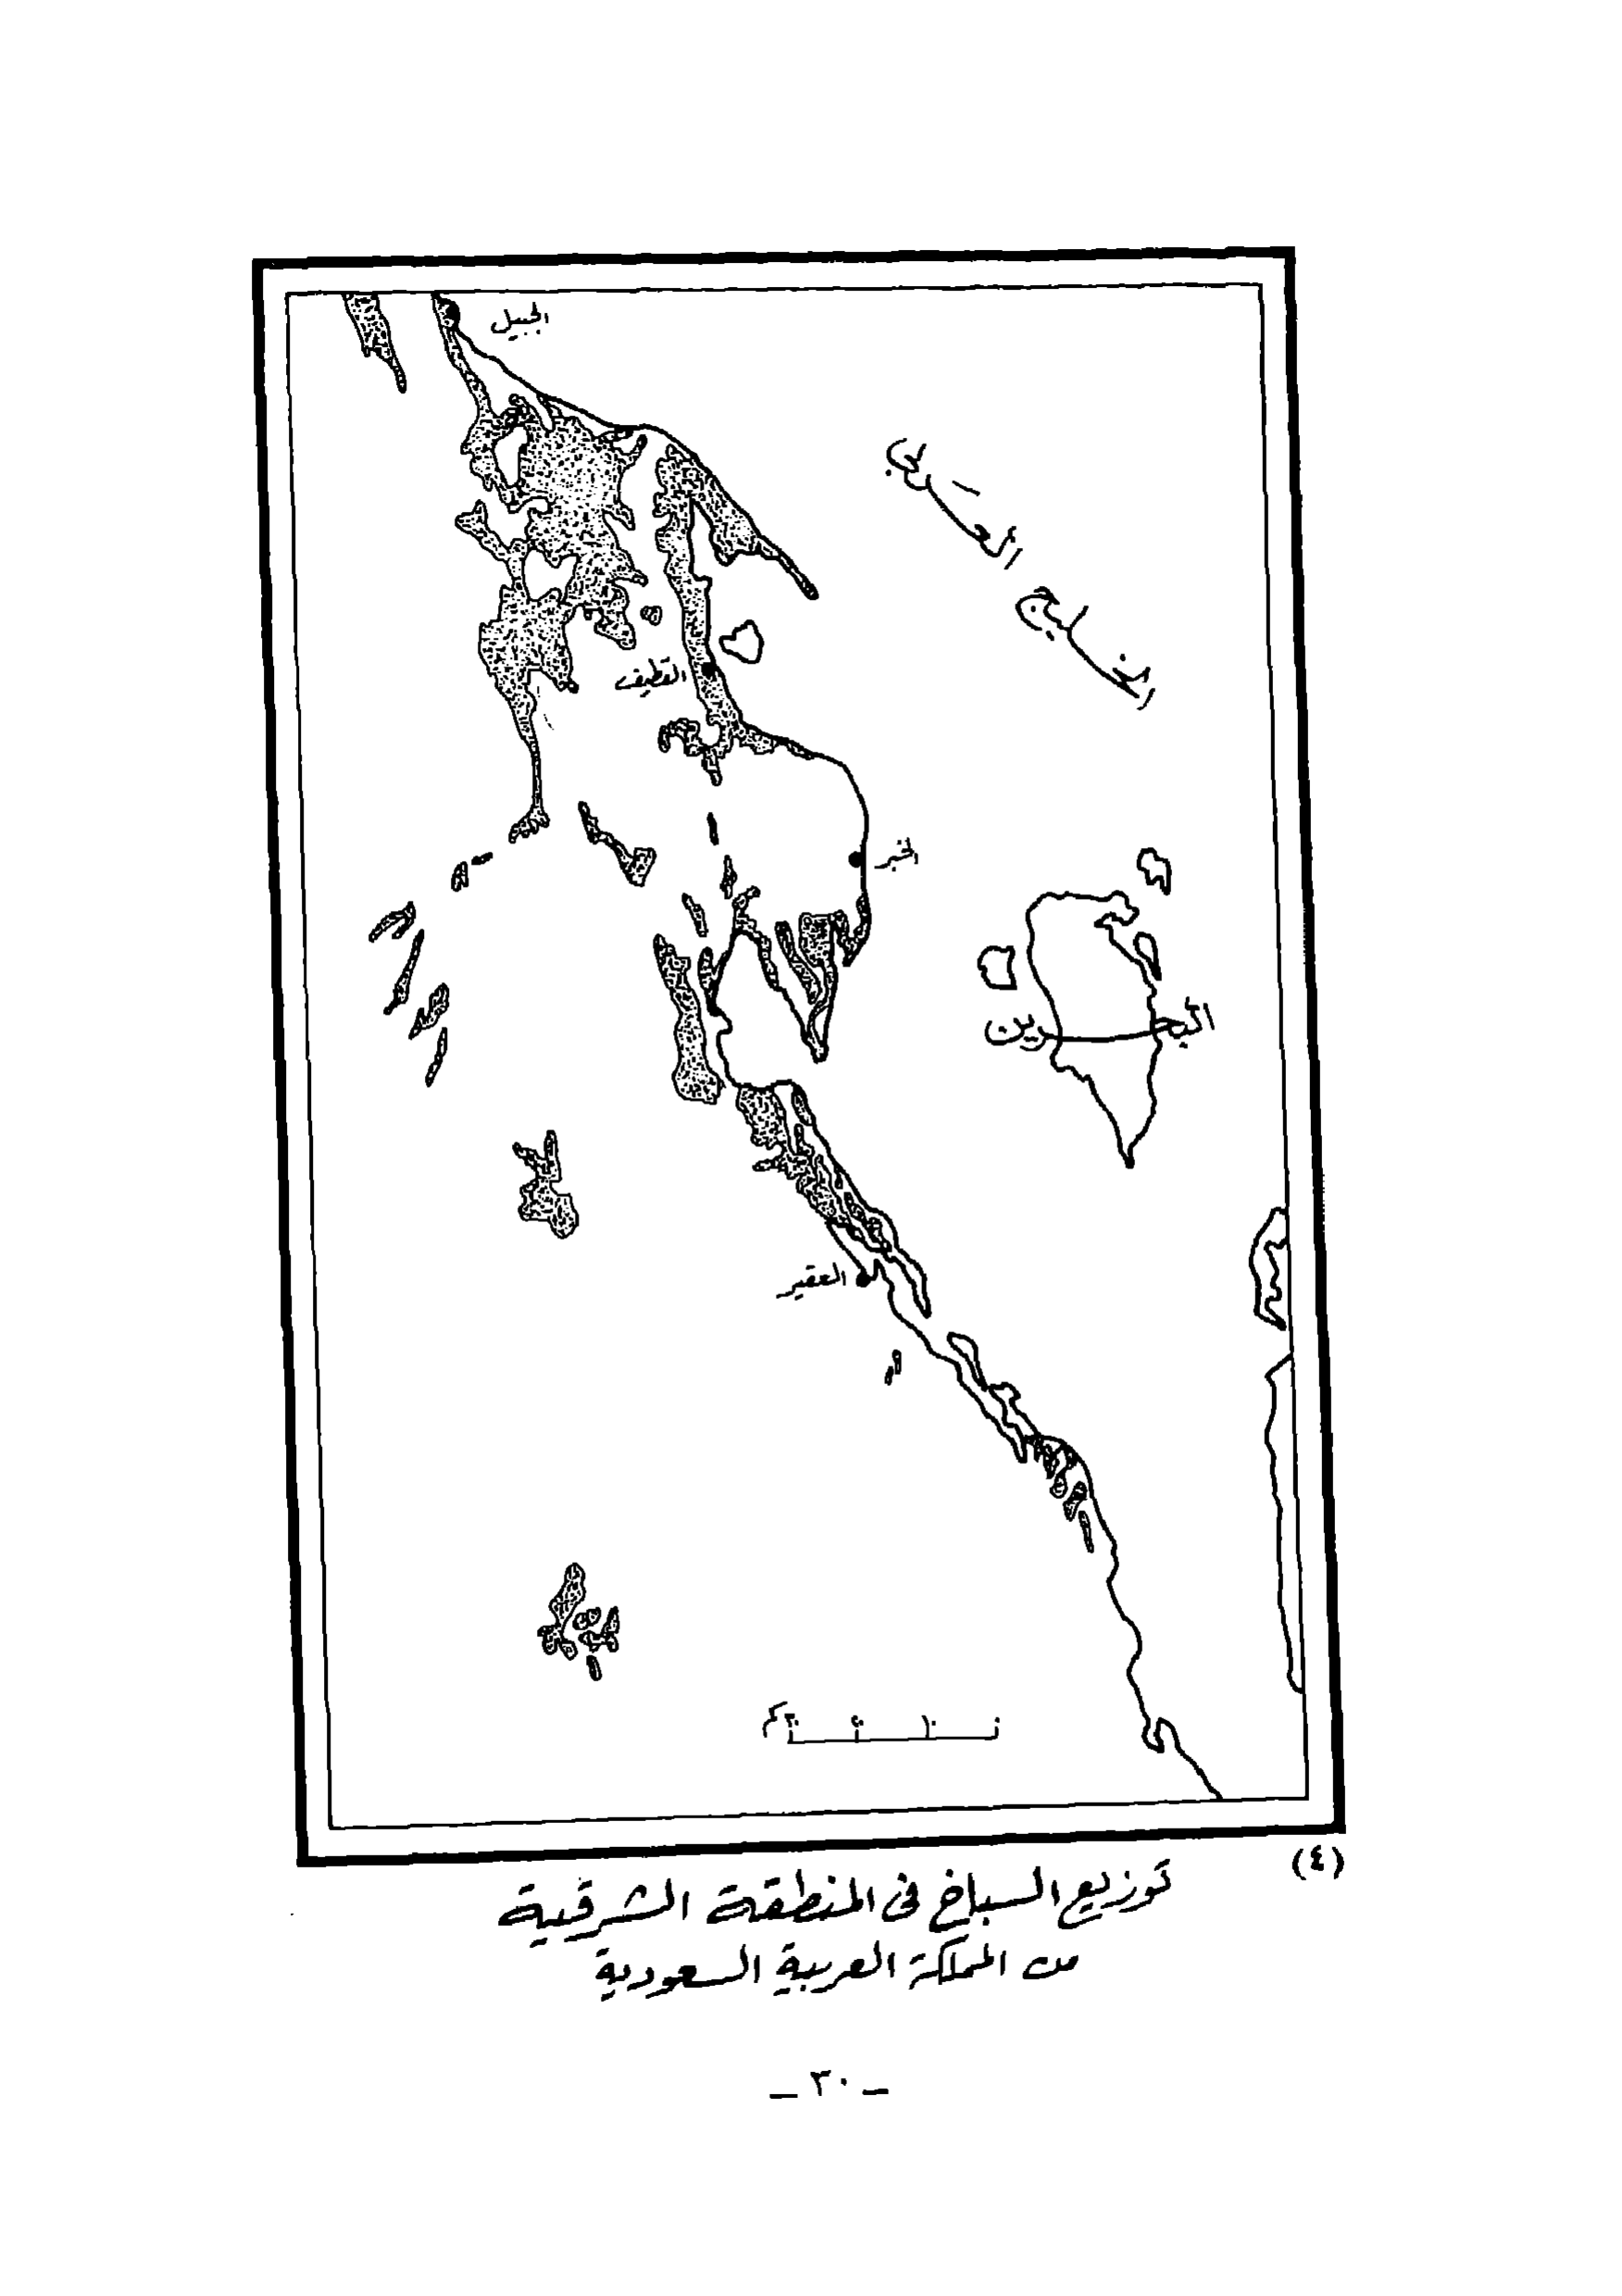 الجبيل
الخليج العربي
القطيف
الخبر
البحرين
العقير
(٤)
توزيع السباخ فى المنطقة الشرقية
من المملكة العربية السعودية
ـ ٣٠ ـ